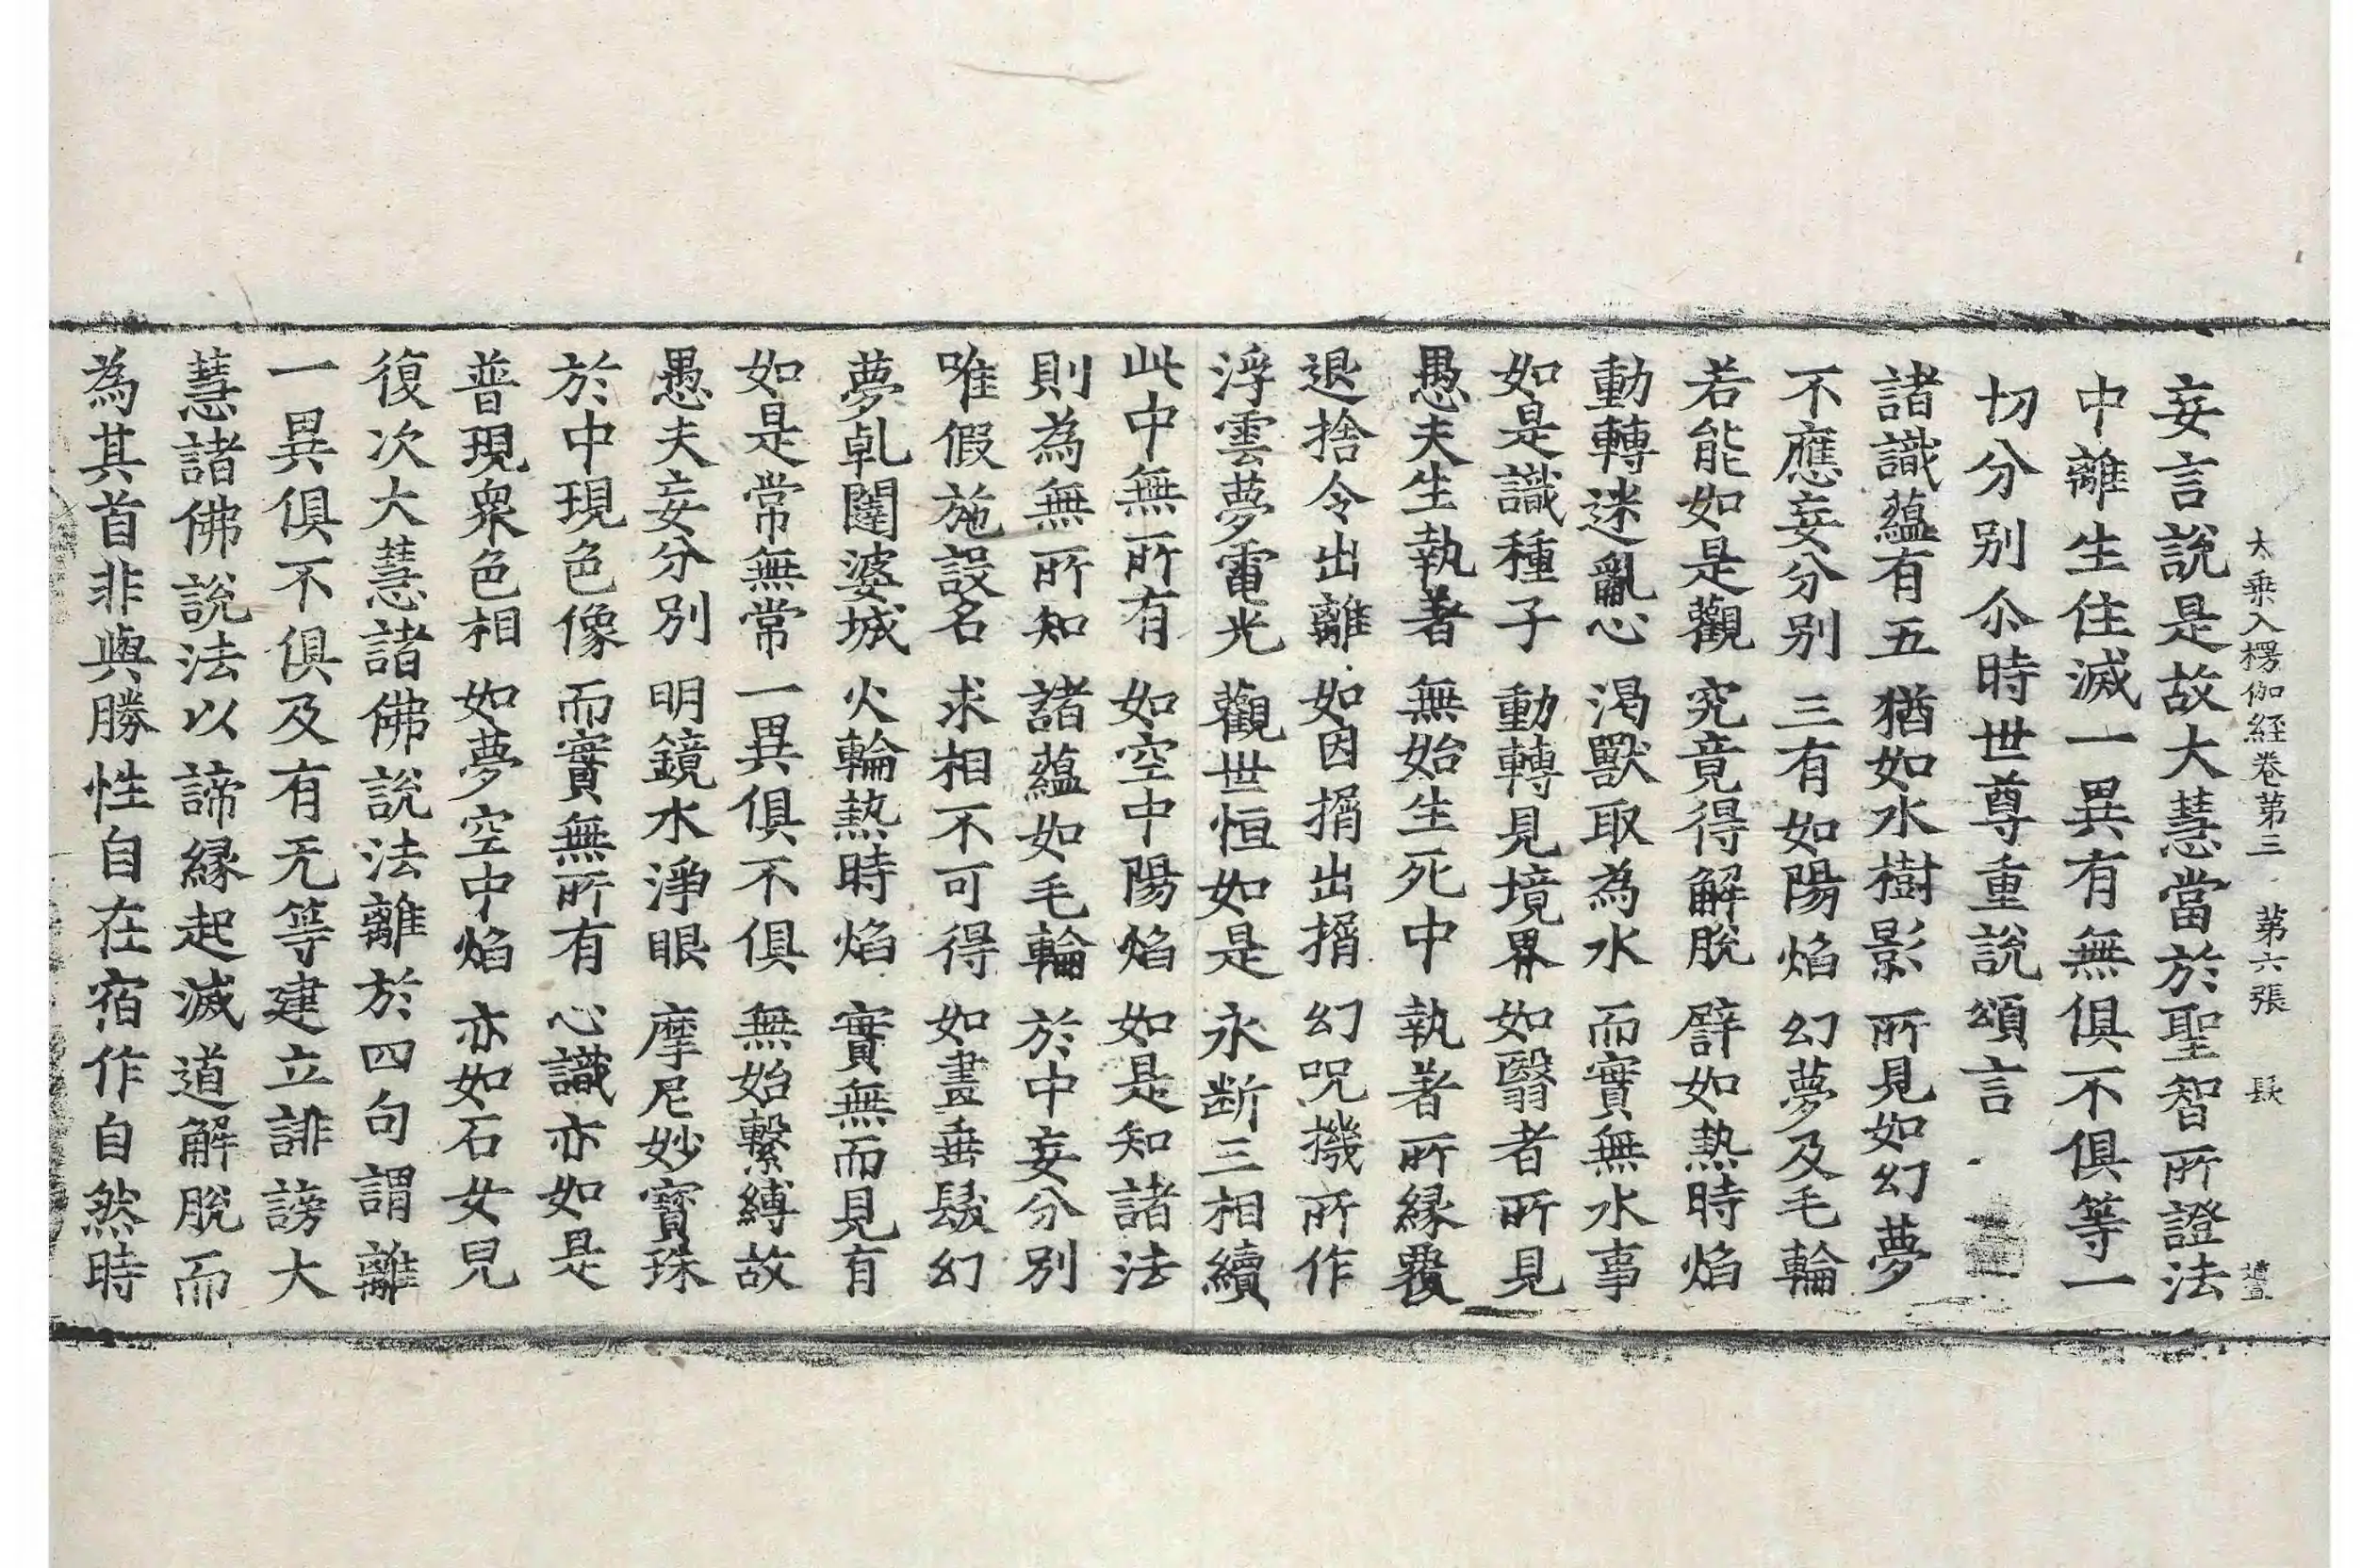 大乗入楞伽経卷第三 第六張 髸
妄言說是故大慧當於聖智所證法
中離生住滅一異有無俱不俱等一
切分別尒時世尊重說頌言
諸識蘊有五 猶如水樹影 所見如幻夢
不應妄分別 三有如陽焰 幻夢及毛輪
若能如是觀 究竟得解脫 譬如熱時焰
動轉迷亂心 渴獸取為水 而實無水事
如是識種子 動轉見境界 如翳者所見
愚夫生執著 無始生死中 執著所縁覆
退捨令出離 如因揟出揟 幻呪機所作
浮雲夢電光 觀世恒如是 永断三相續
此中無所有 如空中陽焰 如是知諸法
則為無所知 諸蘊如毛輪 於中妄分別
唯假施設名 求相不可得 如畫垂髮幻
夢乹闥婆城 火輪熱時焰 實無而見有
如是常無常 一異俱不俱 無始繫縛故
愚夫妄分別 明鏡水淨眼 摩尼妙寶珠
於中現色像 而實無所有 心識亦如是
普現衆色相 如夢空中焰 亦如石女兒
復次大慧諸佛說法離於四句謂離
一異俱不俱及有无等建立誹謗大
慧諸佛說法以諦縁起滅道解脫而
為其首非與勝性自在宿作自然時